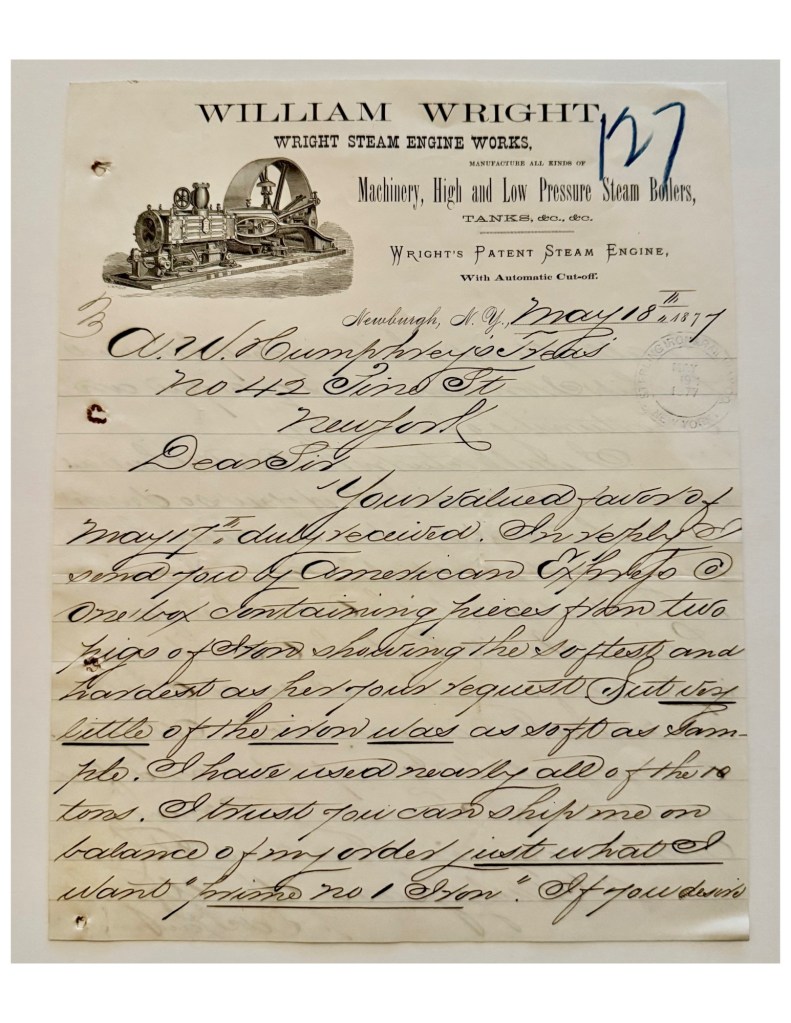 WILLIAM WRIGHT,
127
WRIGHT STEAM ENGINE WORKS,
MANUFACTURE ALL KINDS OF
Machinery, High and Low Pressure Steam Boilers,
TANKS, &c., &c.
WRIGHT'S PATENT STEAM ENGINE,
With Automatic Cut-off.
Newburgh, N. Y., May 18th 1877
A. W. Humphrey's
No 42 Pine St
New York
Dear Sir
Your valued favor of
May 17th duly received. In reply I
send you by American Express Co
one box containing pieces from two
pigs of Iron showing the softest and
hardest as per your request But very
little of the iron was as soft as Sam-
ple. I have used nearly all of the 10
tons. I trust you can ship me on
balance of my order just what I
want "prime no 1 Iron". If you desire